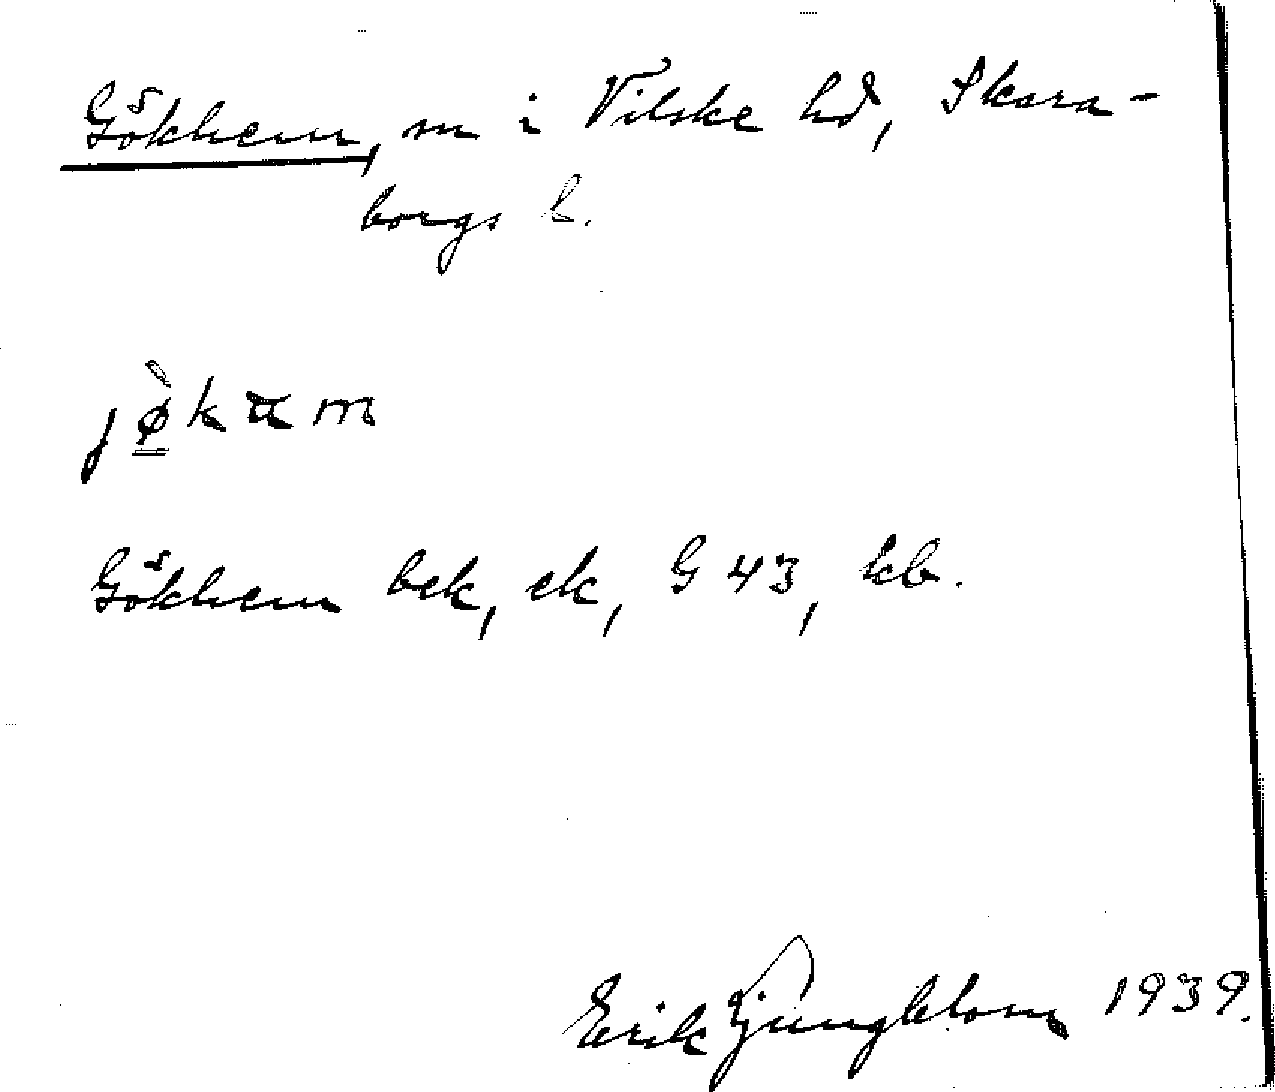 Gökhem, sn i Vilske hd, Skara-
borgs l.
jø̀kam
Gökhem bek, ek, G 43, kb.
Erik Ljungblom 1939.